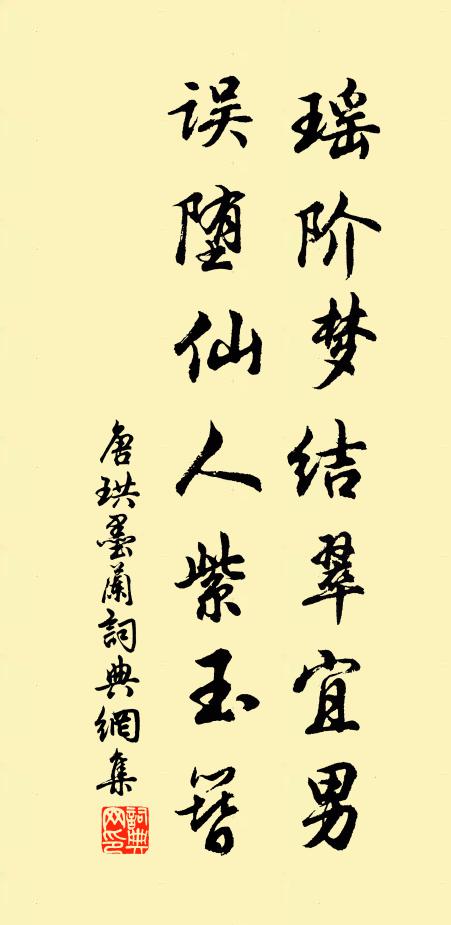 瑶阶梦结翠宜男
误堕仙人紫玉簪
唐珙墨蘭詞典網集
詞典网印